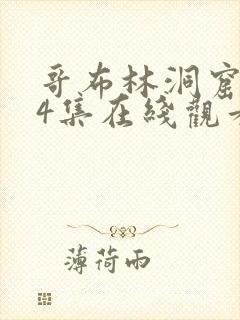 哥布林洞窟
4集在綫觀
薄荷雨